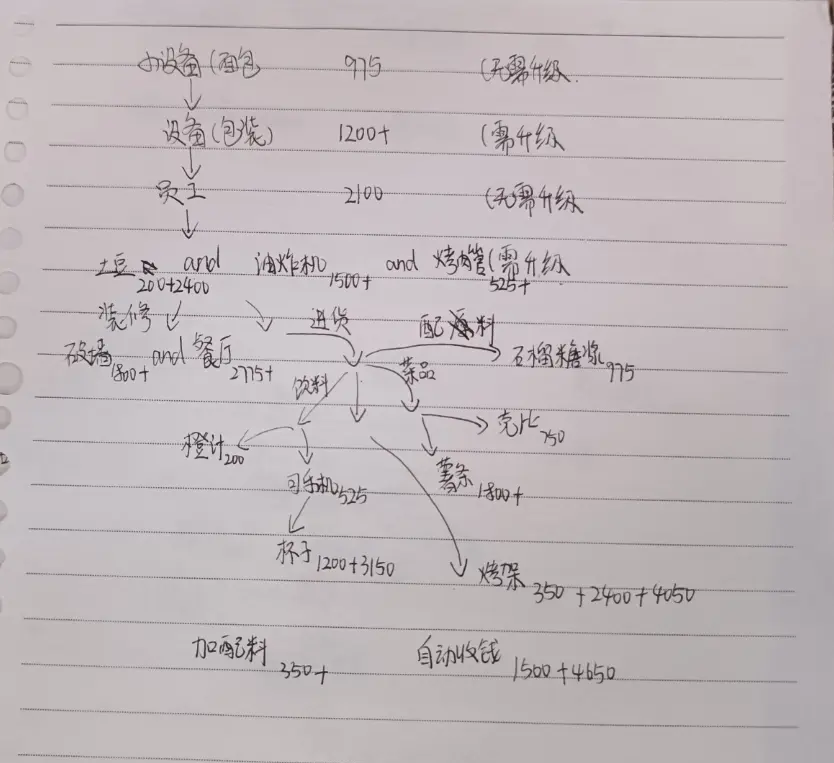 小设备(面包 975 (无需升级.
设备(包装) 1200+ (需升级
员工 2100 (无需升级
土豆 and 油炸机 1500+ and 烤肉管(需升级
200+2400 525+
装修 进货 配料
砍墙 1800+ and 餐厅 2775+ 石榴糖浆 975
饮料 菜品
橙汁 200 壳比 750
可乐机 525 薯条 1800+
杯子 1200+3150 烤架 350+2400+4050
加配料 350+ 自动收钱 1500+4650